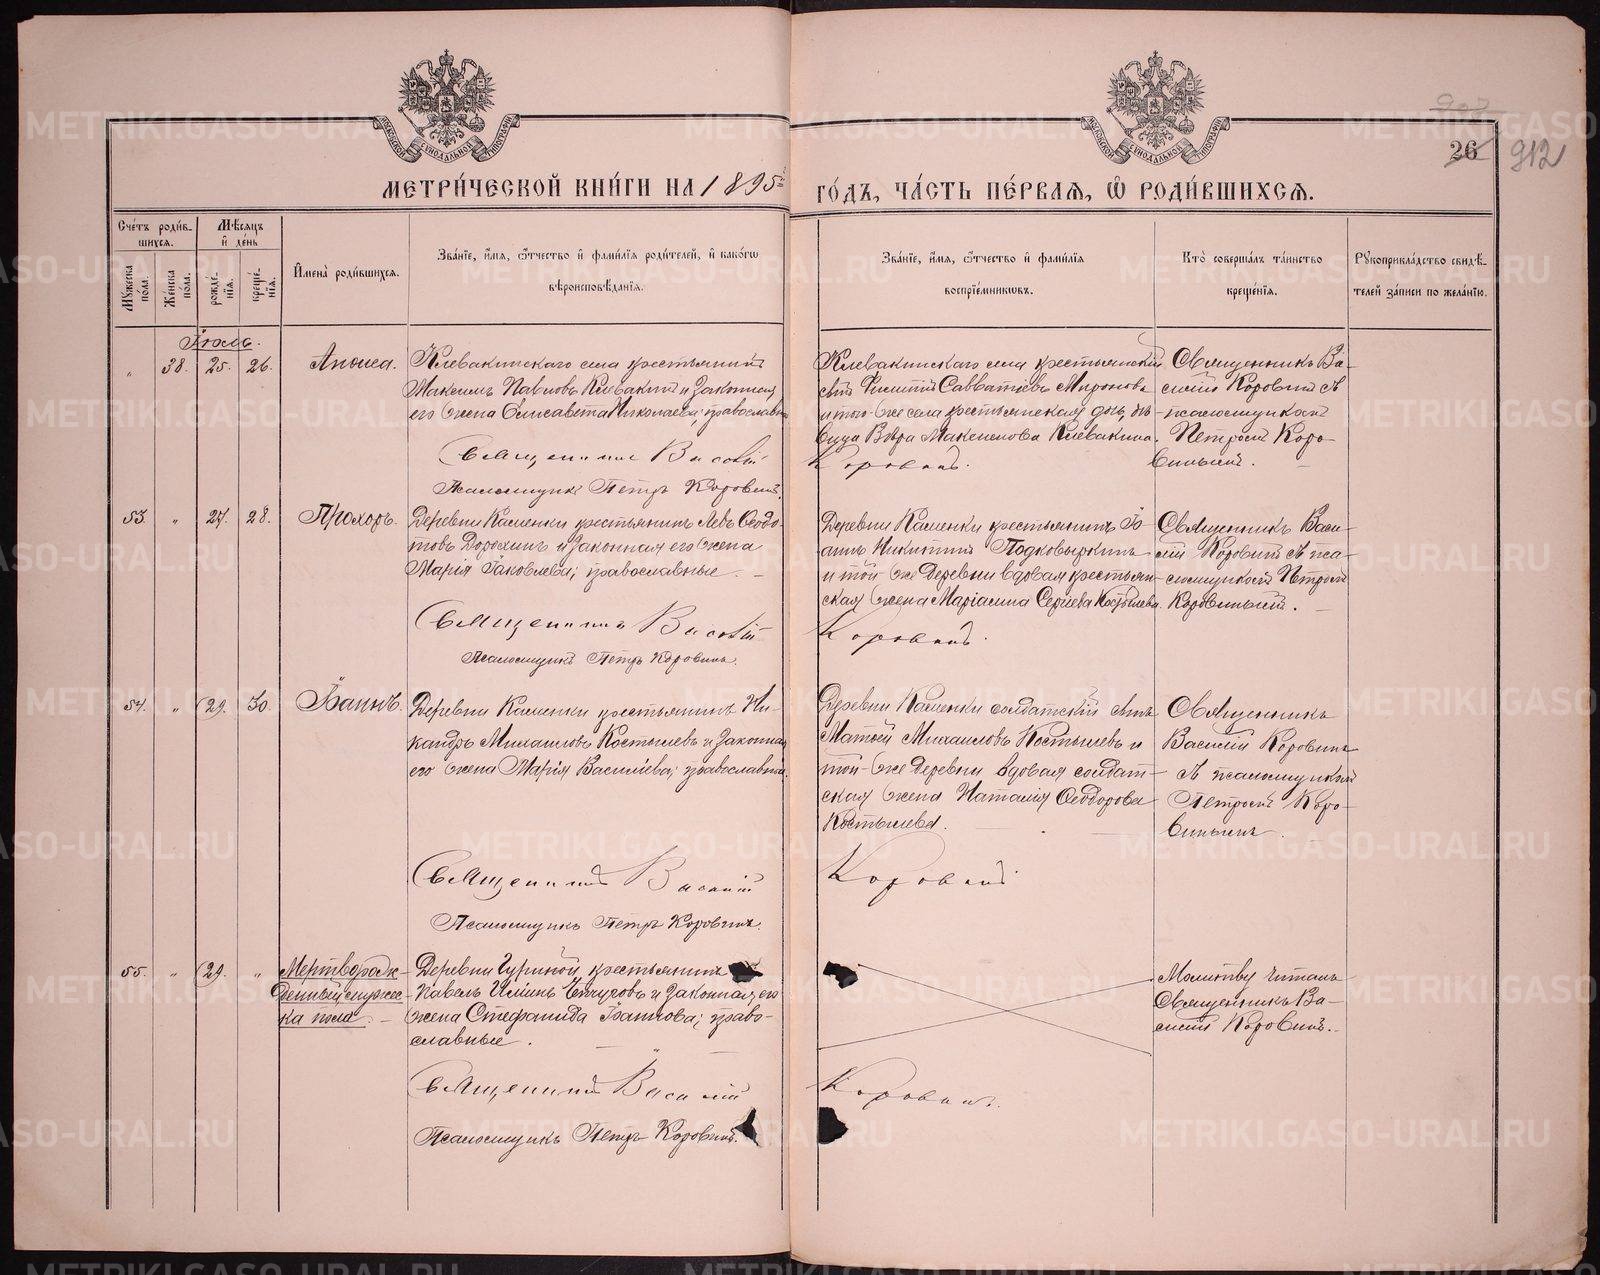 903
26 912
МОСКОВСКОЙ СУНОДАЛЬНОЙ ТИПОГРАФІИ
МОСКОВСКОЙ СУНОДАЛЬНОЙ ТИПОГРАФІИ
МЕТРИ́ЧЕСКОЙ КНИ́ГИ НА 1895 ГО́ДЪ, ЧА́СТЬ ПЕ́РВАЯ, Ѡ РОДИ́ВШИХСЯ.
Сче́тъ роди́в-
шихся.
Му́жеска по́ла.
Же́нска по́ла.
Мѣ́сяцъ
и҆ де́нь
рожде́-
нїя.
креще́-
нїя.
И҆мена̀ роди́вшихся.
Зва́нїе, и҆́мя, ѻ҆́тчество и҆ фами́лїя роди́телей, и҆ како́гѡ
вѣроисповѣ́данїя.
Зва́нїе, и҆́мя, ѻ҆́тчество и҆ фами́лїя
воспрїе́мникѡвъ.
Кто̀ соверша́лъ та́инство
креще́нїя.
Рꙋкоприкла́дство свидѣ́-
телей за́писи по жела́нїю.
Іюль.
„ 38. 25. 26. Анѳиса.
Клевакинскаго села крестьянинъ
Максимъ Павловъ Клевакинъ и законная
его жена Елисавета Николаева; православн
Священникъ Василій
Псаломщикъ Петръ Коровинъ.
Клевакинскаго села крестьянскій
сынъ Савватіевъ Мироновъ
и того же села крестьянская дочь дѣ-
вица Вѣра Максимова Клевакина.
Коровинъ.
Священникъ Ва-
силій Коровинъ съ
псаломщикомъ
Петромъ Коро-
винымъ.
53. „ 27. 28. Прохоръ.
Деревни Каменки крестьянинъ Левъ Ѳеодо-
товъ Дорохинъ и законная его жена
Марія Іаковлева; православные.
Священникъ Василій
Псаломщикъ Петръ Коровинъ.
Деревни Каменки крестьянинъ Іо-
аннъ Никитинъ Подковыркинъ
и той же деревни вдовая крестьян-
ская жена Маріамна Сергіева Костылева.
Коровинъ.
Священникъ Васи-
лій Коровинъ съ пса-
ломщикомъ Петромъ
Коровинымъ.
54. „ 29. 30. Іоаннъ.
Деревни Каменки крестьянинъ Ни-
кандръ Михаиловъ Костылевъ и законная
его жена Марія Василіева; православные.
Священникъ Василій
Псаломщикъ Петръ Коровинъ.
Деревни Каменки солдатскій сынъ
Матѳей Михаиловъ Костылевъ и
той-же деревни вдовая солдат-
ская жена Наталія Ѳеодорова
Костылева.
Коровинъ
Священникъ
Василій Коровинъ
съ псаломщикомъ
Петромъ Коро-
винымъ.
55. „ 29. „ Мертворож-
денный мужес-
ка пола.
Деревни Гуриной крестьянинъ
Павелъ Илiинъ и законная его
жена Стефанида Іоаннова; право-
славные.
Священникъ Василій
Псаломщикъ Петръ Коровинъ.
Коровинъ.
Молитву читалъ
Священникъ Ва-
силій Коровинъ.
METRIKI.GASO-URAL.RU